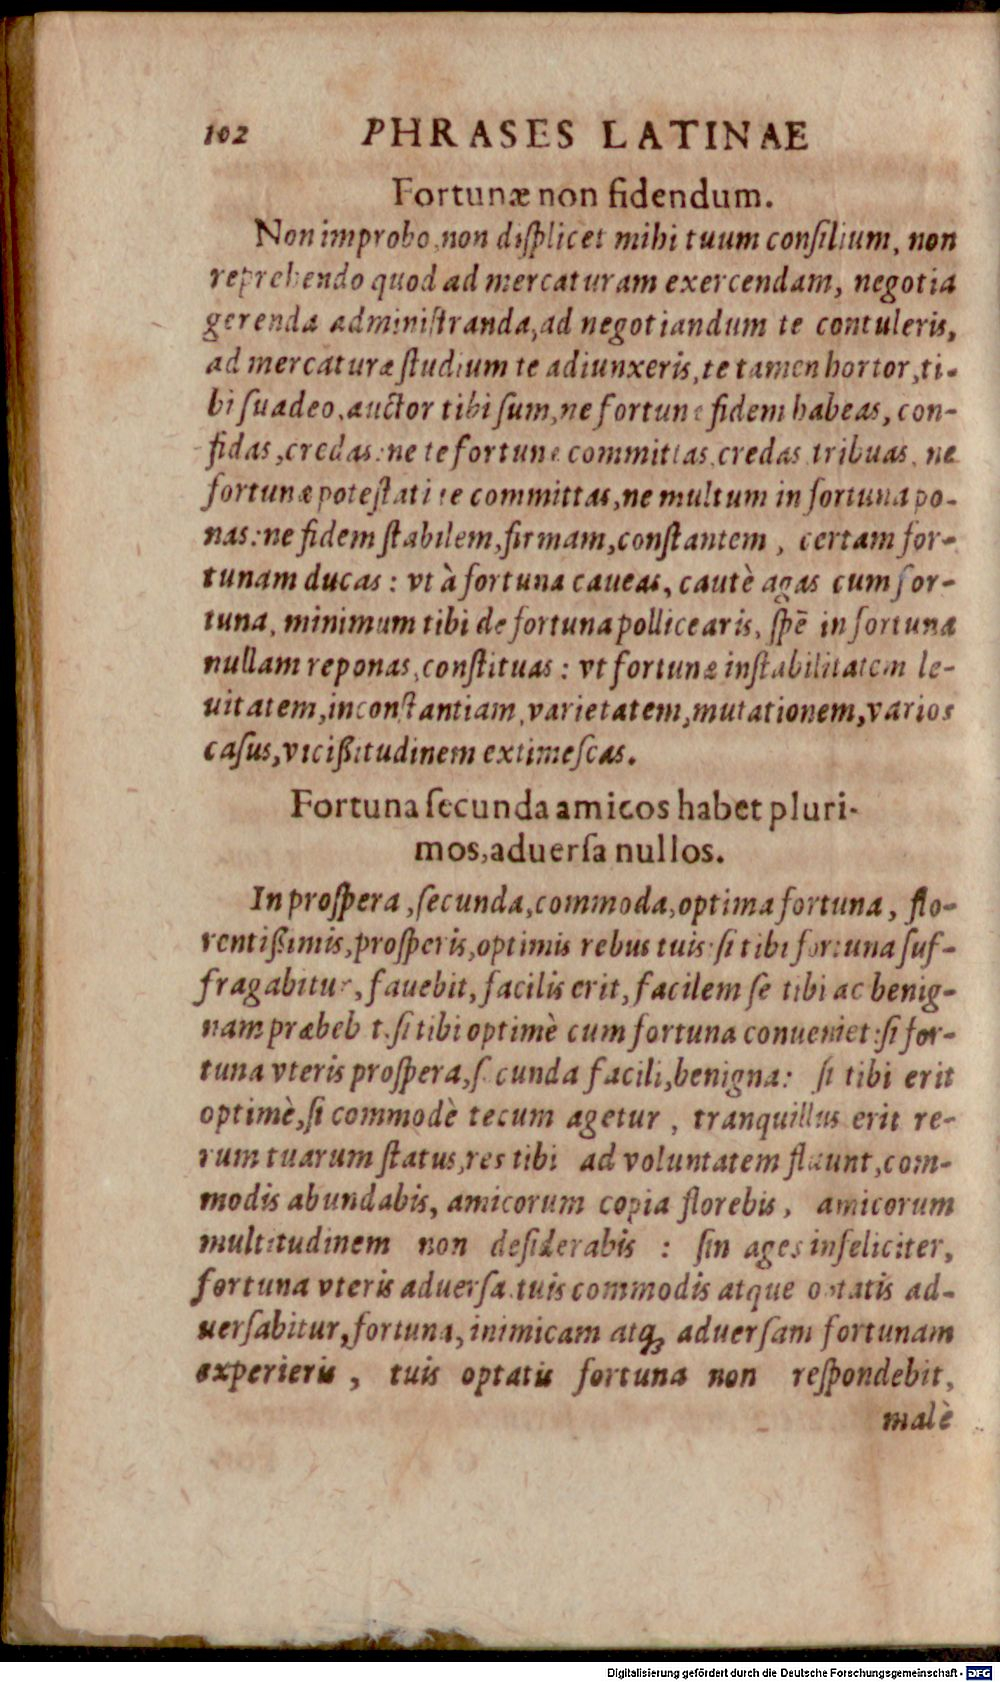 102 PHRASES LATINAE
Fortunæ non fidendum.
Non improbo, non diſplicet mihi tuum conſilium, non
reprehendo quod ad mercaturam exercendam, negotia
gerenda adminiſtranda, ad negotiandum te contuleris,
ad mercaturæ ſtudium te adiunxeris, te tamen hortor, ti-
bi ſuadeo, auctor tibi ſum, ne fortunæ fidem habeas, con-
fidas, credas: ne te fortunæ committas, credas tribuas, ne
fortunæ poteſtati te committas, ne multum in fortuna po-
nas: ne fidem ſtabilem, firmam, conſtantem, certam for-
tunam ducas: vt à fortuna caueas, cautè agas cum for-
tuna, minimum tibi de fortuna pollicearis, ſpē in fortuna
nullam reponas, conſtituas: vt fortunæ inſtabilitatem le-
uitatem, inconſtantiam, varietatem, mutationem, varios
caſus, viciſſitudinem extimeſcas.
Fortuna ſecunda amicos habet pluri-
mos, aduerſa nullos.
In proſpera, ſecunda, commoda, optima fortuna, flo-
rentiſſimis, proſperis, optimis rebus tuis: ſi tibi fortuna ſuf-
fragabitur, fauebit, facilis erit, facilem ſe tibi ac benig-
nam præbeb t. ſi tibi optimè cum fortuna conueniet: ſi for-
tuna vteris proſpera, ſecunda facili, benigna: ſi tibi erit
optimè, ſi commodè tecum agetur, tranquillus erit re-
rum tuarum ſtatus, res tibi ad voluntatem fluunt, com-
modis abundabis, amicorum copia florebis, amicorum
multitudinem non deſiderabis: ſin ages infeliciter,
fortuna vteris aduerſa. tuis commodis atque optatis ad-
uerſabitur, fortuna, inimicam atq; aduerſam fortunam
experieris, tuis optatis fortuna non reſpondebit,
malè
Digitalisierung gefördert durch die Deutsche Forschungsgemeinschaft - DFG